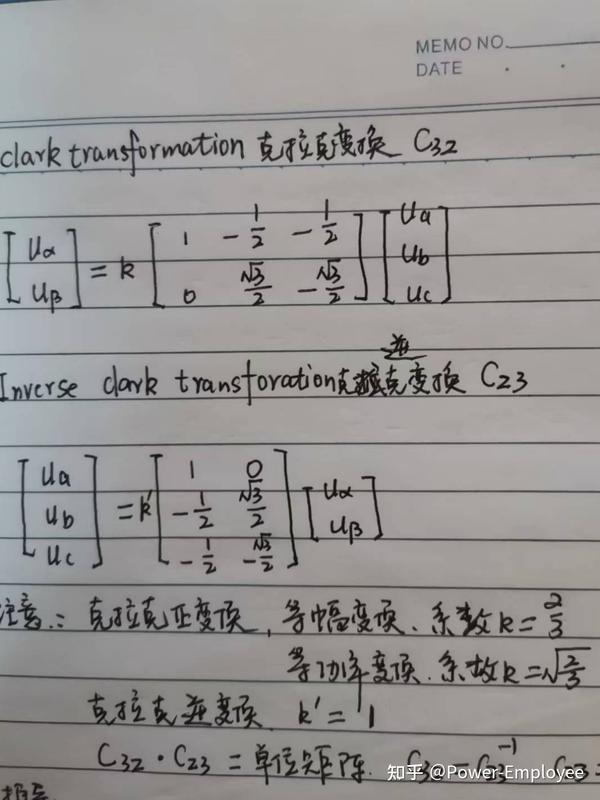 MEMO NO.
DATE
clark transformation 克拉克变换 C32
[uα uβ] = k [1 -1/2 -1/2; 0 √3/2 -√3/2] [ua ub uc]
逆
Inverse clark transforation克拉克变换 C23
[ua ub uc] = k' [1 0; -1/2 √3/2; -1/2 -√3/2] [uα uβ]
注意: 克拉克正变换, 等幅变换. 系数k=2/3
等功率变换. 系数k=√2/3
克拉克逆变换 k'=1
C32·C23=单位矩阵. C32=C23⁻¹ C23=
知乎 @Power-Employee